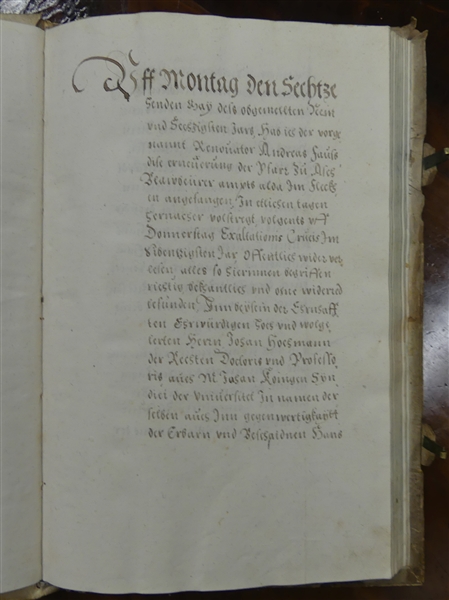 Uff Montag den Sechtze
henden May dess obgemellten Neun
und Sechzigsten Jars, Hab ich der vorge
nannt Renovator Andreas Hauss
dise erneuerung der Pfarr zu
amps alda Im Fleck
en angefangen, In etlichen tagen
hernacher volstregt, volgents uff
Donnerstag Exaltationis Crucis Im
Sibentzigsten Jar offentlich wider ver
lesen alles so hierinnen begriffen
richtig bekanntlich und one widerred
befunden, Inn beysein der Ehrnhaff
ten Ehrwürdigen Hoch und wolge
lerten Herrn Johan Hochmann
der Rechten Doctoris und Professo
ris auch M. Johan Königen Syn
dici der Universitet In namen der
selben auch Inn gegenwertigkaytt
der Erbarn und Beschaidnen Hans